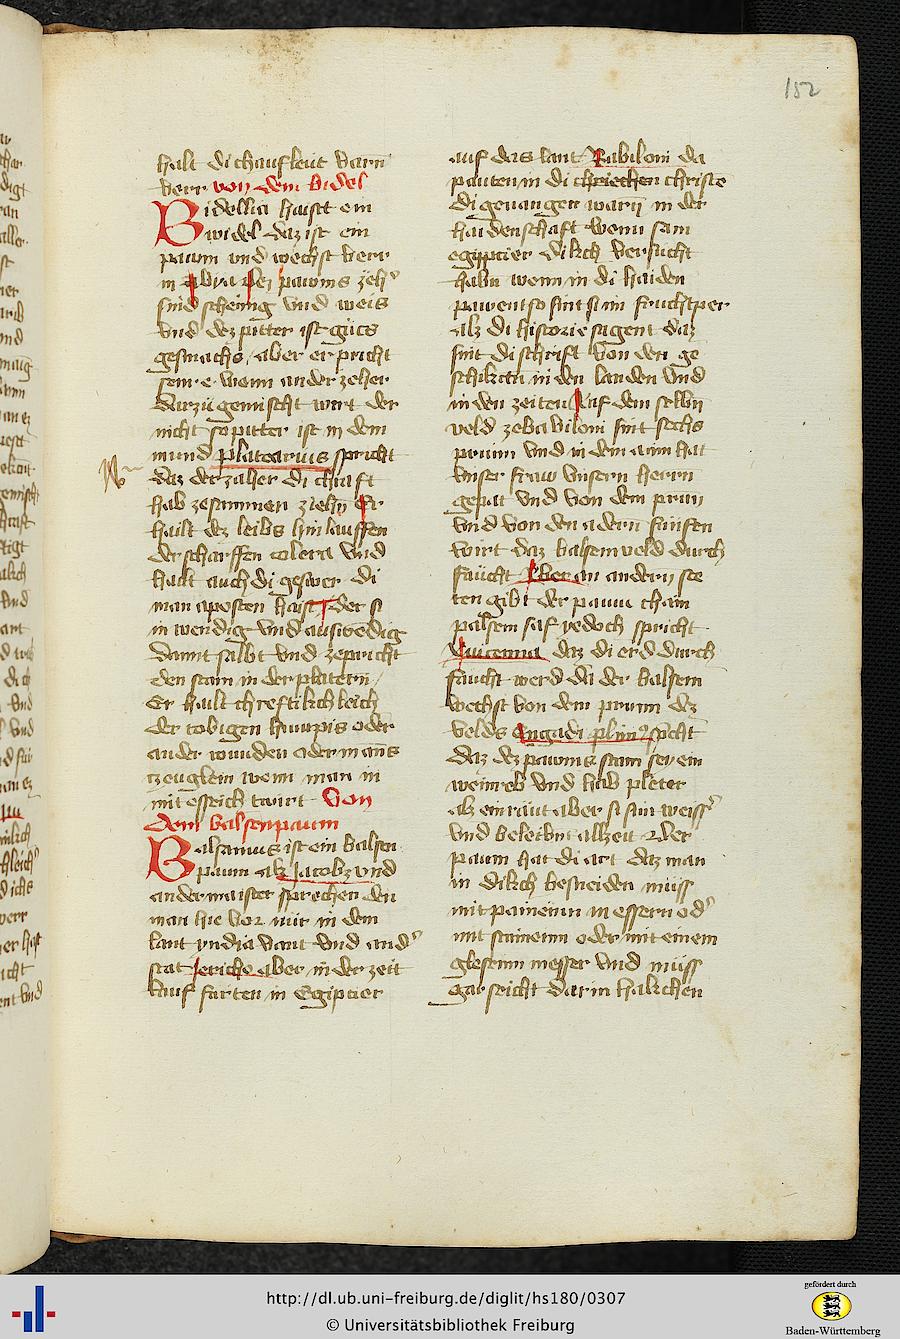 152
halt di chaufleut varn
verr von dem bidel
Bidellia haist ein
widel daz ist ein
paum vnd wechst verr
in abya Dez paums zeh
sind scheinig vnd weis
vnd dez pitter ist gucs
gesmachs / aber er pricht
sein e wenn ander zeher
darzu gemischt wirt der
nicht so pitter ist in dem
mund platearius spricht
daz der zaher di chraft
hab zesammen ziehn Er
hailt dez leibs hin lauffen
der scharffen colera vnd
hailt auch di geswer di
man aposten haist der si
in wendig vnd auswendig
damit salbt vnd zepricht
den stain in der platern /
Er hailt chreftiklich leich
der tobigen huntpis oder
ander wunden oder mans
zeuglein wenn man in
mit essich twirt Von
dem balsenpaum
Balsamus ist ein balsen
paum alz Jacobz vnd
ander maister sprechen den
man hie vor nur in dem
lant yndia vant vnd and
stat Jericho aber in der zeit
lauf furten in Egipcier
auf das lant Babiloni da
pauten in di chriechen christe
di geuangen warn in der
haidenschaft wenn sam
egippcier dikch versucht
habn wenn in di haiden
pawent so sint si nu fruchtper
alz di historie sagent daz
sint di schrift von den ge
schihten in den landen vnd
in den zeiten Auf dem selbn
veld ze babiloni sint sechs
prunn vnd in dem ainn hat
vnser fraw vnsern herrn
gepatt vnd von dem prun
vnd von den adern funfen
wirt daz balsemveld durch
fäucht Aber an andern ste
ten gibt der paum chain
palsem saf yedoch spricht
Auicenna daz di erd durch
fäucht werd da der balsem
wechst von dem prunn dez
velds Engadi plini9 spcht
daz dez paums stam sey ein
weinreb vnd hab pleter
alz ein raut aber si sin weiss
vnd beleibnt allzeit Der
paum hat di art daz man
in dikch besneiden muss
mit paineinn messern od
mit stainenn oder mit einem
glesenn messer vnd muss
gar seicht dar in hakchen
http://dl.ub.uni-freiburg.de/diglit/hs180/0307
© Universitätsbibliothek Freiburg
gefördert durch
Baden-Württemberg